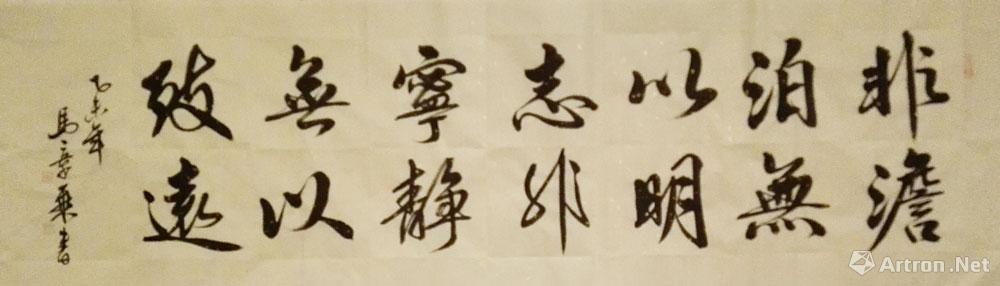 非澹
泊無
以明
志非
寧靜
無以
致遠
乙未年
馬彦乘書
Artron.Net